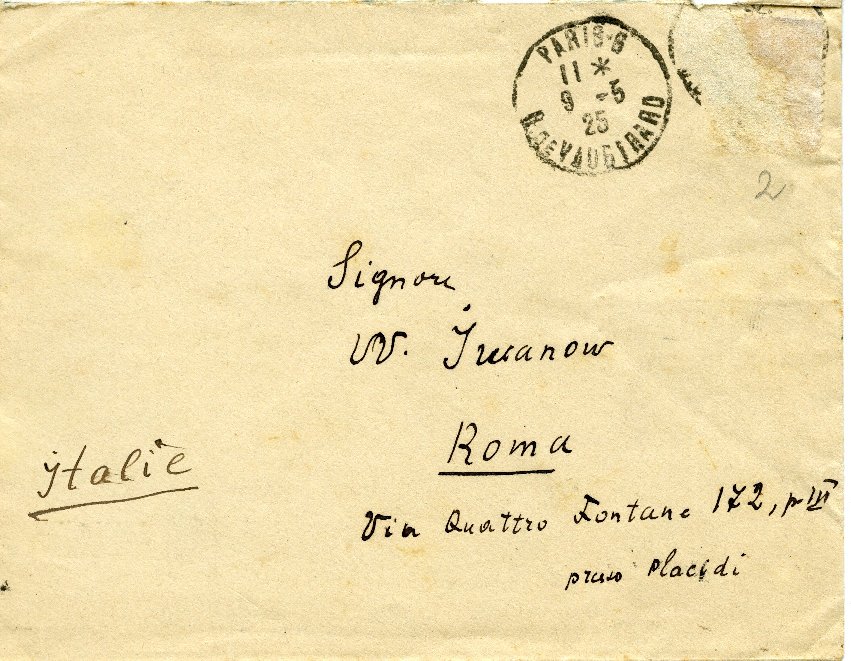 PARIS-6
11 *
9 -5
25
R. DE VAUGIRARD
2
Signore
W. Iwanow
Roma
Italie
Via Quattro Fontane 172, p III
presso Placidi